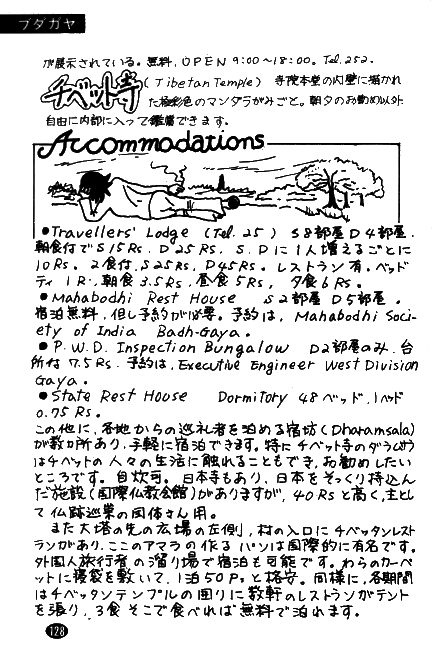 ブダガヤ
が展示されている。無料、OPEN 9:00〜18:00。Tel.252.
チベット寺 (Tibetan Temple) 寺院本堂の内壁に描かれ
た極彩色のマンダラがみごと。朝夕のお勤め以外
自由に内部に入って鑑賞できます。
Accommodations
●Travellers' Lodge (Tel. 25) S8部屋D4部屋.
朝食付でS15Rs. D25Rs. S.Dに1人増えるごとに
10Rs. 2食付.S25Rs, D45Rs. レストラン有.ベッド
ティ 1R.朝食3.5Rs,昼食5Rs, 夕食6Rs.
●Mahabodhi Rest House S2部屋D5部屋.
宿泊無料,但し予約が必要。予約は, Mahabodhi Soci-
ety of India Badh-Gaya.
●P.W.D. Inspection Bungalow D2部屋のみ.台
所有 7.5Rs.予約は.Executive Engineer West Division
Gaya.
●State Rest House Dormitory 48ベッド.1ベッド
0.75Rs.
この他に,各地からの巡礼者を泊める宿坊(Dharamsala)
が数か所あり,手軽に宿泊できます。特にチベット寺の
はチベットの人々の生活に触れることもでき,お勧めしたい
ところです。自炊可。日本寺もあり,日本をそっくり持込ん
だ施設(国際仏教会館)がありますが, 40Rsと高く,主とし
て仏跡巡業の団体さん用。
また大塔の先の広場の左側,村の入口にチベッタンレスト
ランがあり,ここのアマラの作るパンは国際的に有名です。
外国人旅行者の溜り場で宿泊も可能です。わらのカーペ
ットに寝袋を敷いて,1泊50Psと格安。同様に,冬期間
はチベッタンテンプルの囲りに数軒のレストランがテント
を張り,3食そこで食べれば無料で泊れます。
128